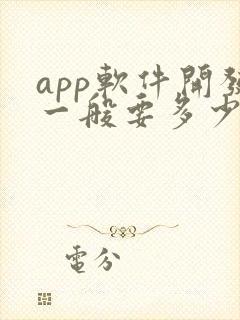 app軟件開發
一般要多少
電分